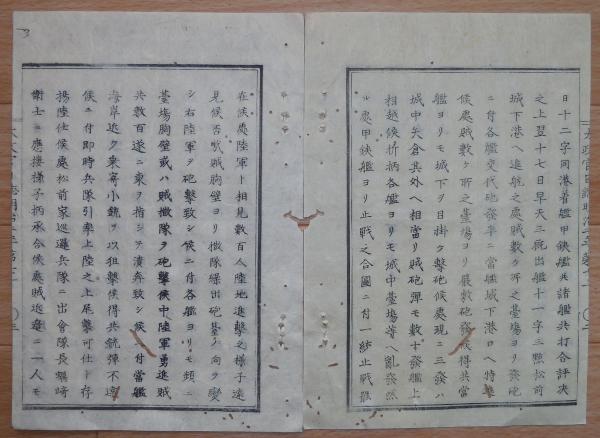 日十二字同港着艦甲鉄艦共諸艦共打合評决
之上翌十七日早天三厩出艦十一字三點松前
城下港ヘ進航之處賊數ケ所之臺場ヨリ發砲
ニ付各艦交代砲發率ニ當艦城下港口ヘ特
候處賊數ケ所之臺場ヨリ嚴敷砲發候得共當
艦ヨリモ城下ヲ目掛ケ擊砲候處現ニ三發ハ
城中矢倉其外ヘ相當リ賊砲彈モ數十發艦上
相越候折柄各艦ヨリモ城中臺場等ヘ亂發然
ル處甲鉄艦ヨリ止戰之合圖ニ付一紡止戰罷
在候處陸軍ト相見數百人陸地進擊之樣子遠
見候否哉賊胸壁ヨリ撒隊繰出砲墓ノ向ヲ變
シ右陸軍ヲ砲擊致シ候ニ付各艦ヨリモ頻ニ
臺場胸壁或ハ賊撒隊ヲ砲擊候中陸軍勇進賊
共數百遂ニ東ヲ指シテ潰奔致シ候ニ付當艦
海岸近ク乗寄小銃ヲ以狙擊候得共銃彈不達
候ニ付即時兵隊引率上陸之上尾擊可仕ト存
揚陸仕候處松前家巡邏兵隊ニ出會隊長蠣崎
衛士ニ應接樣子柄承合候處賊近邊ニ一人モ